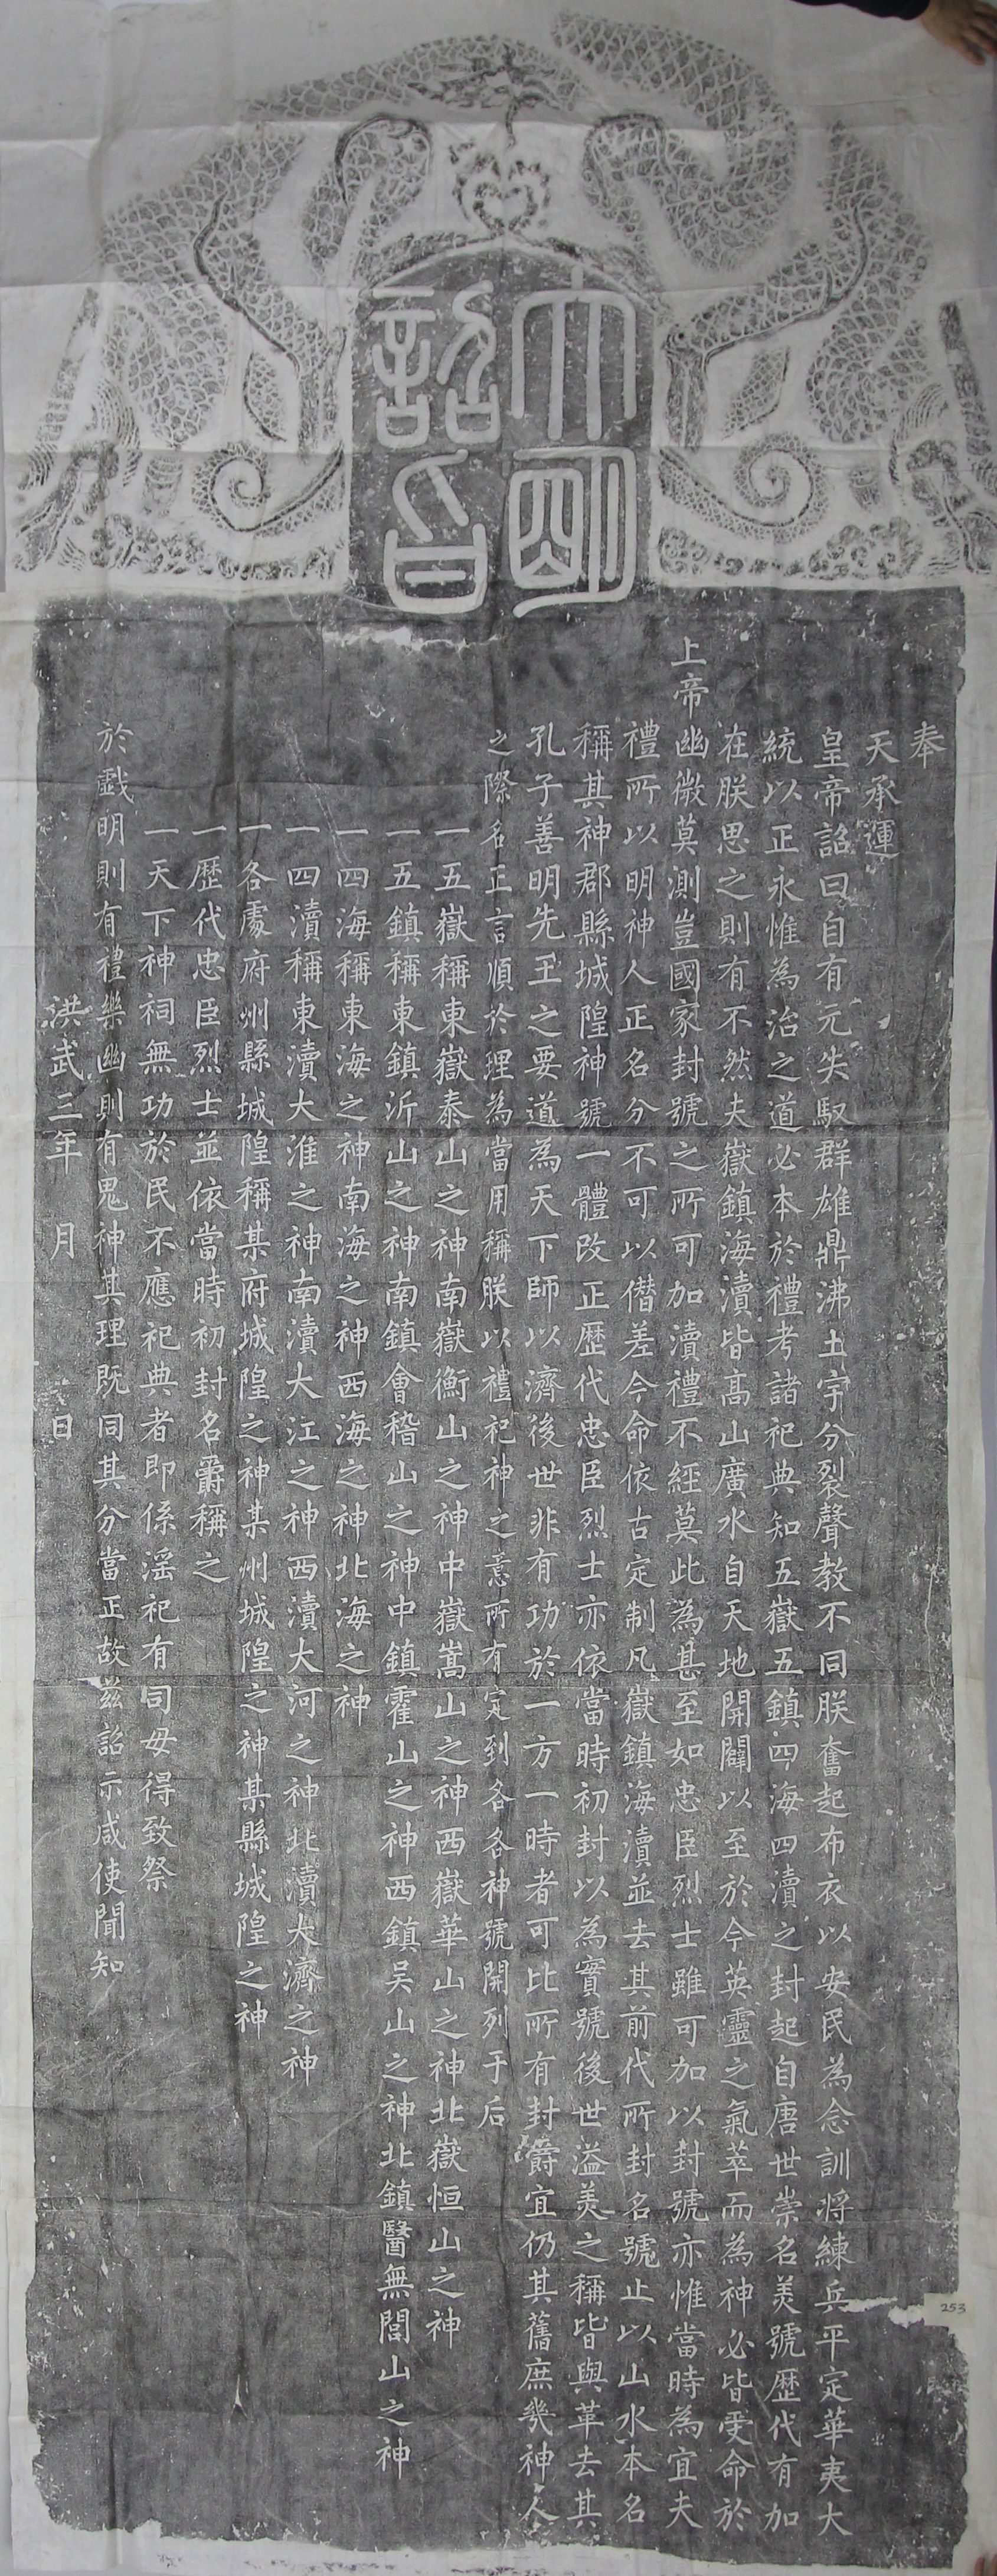 大明
詔旨
奉
天承運
皇帝詔曰自有元失馭群雄鼎沸土宇分裂聲教不同朕奮起布衣以安民為念訓將練兵平定華夷大
統以正永惟為治之道必本於禮考諸祀典知五嶽五鎮四海四瀆之封起自唐世崇名美號歷代有加
在朕思之則有不然夫嶽鎮海瀆皆高山廣水自天地開闢以至於今英靈之氣萃而為神必皆受命於
上帝幽微莫測豈國家封號之所可加瀆禮不經莫此為甚至如忠臣烈士雖可加以封號亦惟當時為宜夫
禮所以明神人正名分不可以僭差今命依古定制凡嶽鎮海瀆並去其前代所封名號止以山水本名
稱其神郡縣城隍神號一體改正歷代忠臣烈士亦依當時初封以為實號後世溢美之稱皆與革去其
孔子善明先王之要道為天下師以濟後世非有功於一方一時者可比所有封爵宜仍其舊庶幾神人
之際名正言順於理為當用稱朕以禮祀神之意所有定到各各神號開列于后
一五嶽稱東嶽泰山之神南嶽衡山之神中嶽嵩山之神西嶽華山之神北嶽恒山之神
一五鎮稱東鎮沂山之神南鎮會稽山之神中鎮霍山之神西鎮吴山之神北鎮醫無閭山之神
一四海稱東海之神南海之神西海之神北海之神
一四瀆稱東瀆大淮之神南瀆大江之神西瀆大河之神北瀆大濟之神
一各處府州縣城隍稱某府城隍之神某州城隍之神某縣城隍之神
一歷代忠臣烈士並依當時初封名爵稱之
一天下神祠無功於民不應祀典者即係淫祀有司毋得致祭
於戲明則有禮樂幽則有鬼神其理既同其分當正故茲詔示咸使聞知
洪武三年 月 日
253